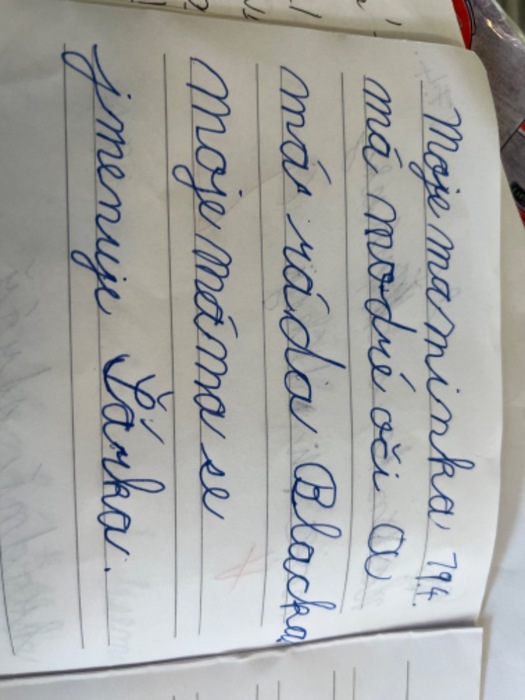 Moje maminka 19.4.
má modré oči a
má ráda Blacka
Moje máma se
jmenuje Šárka.